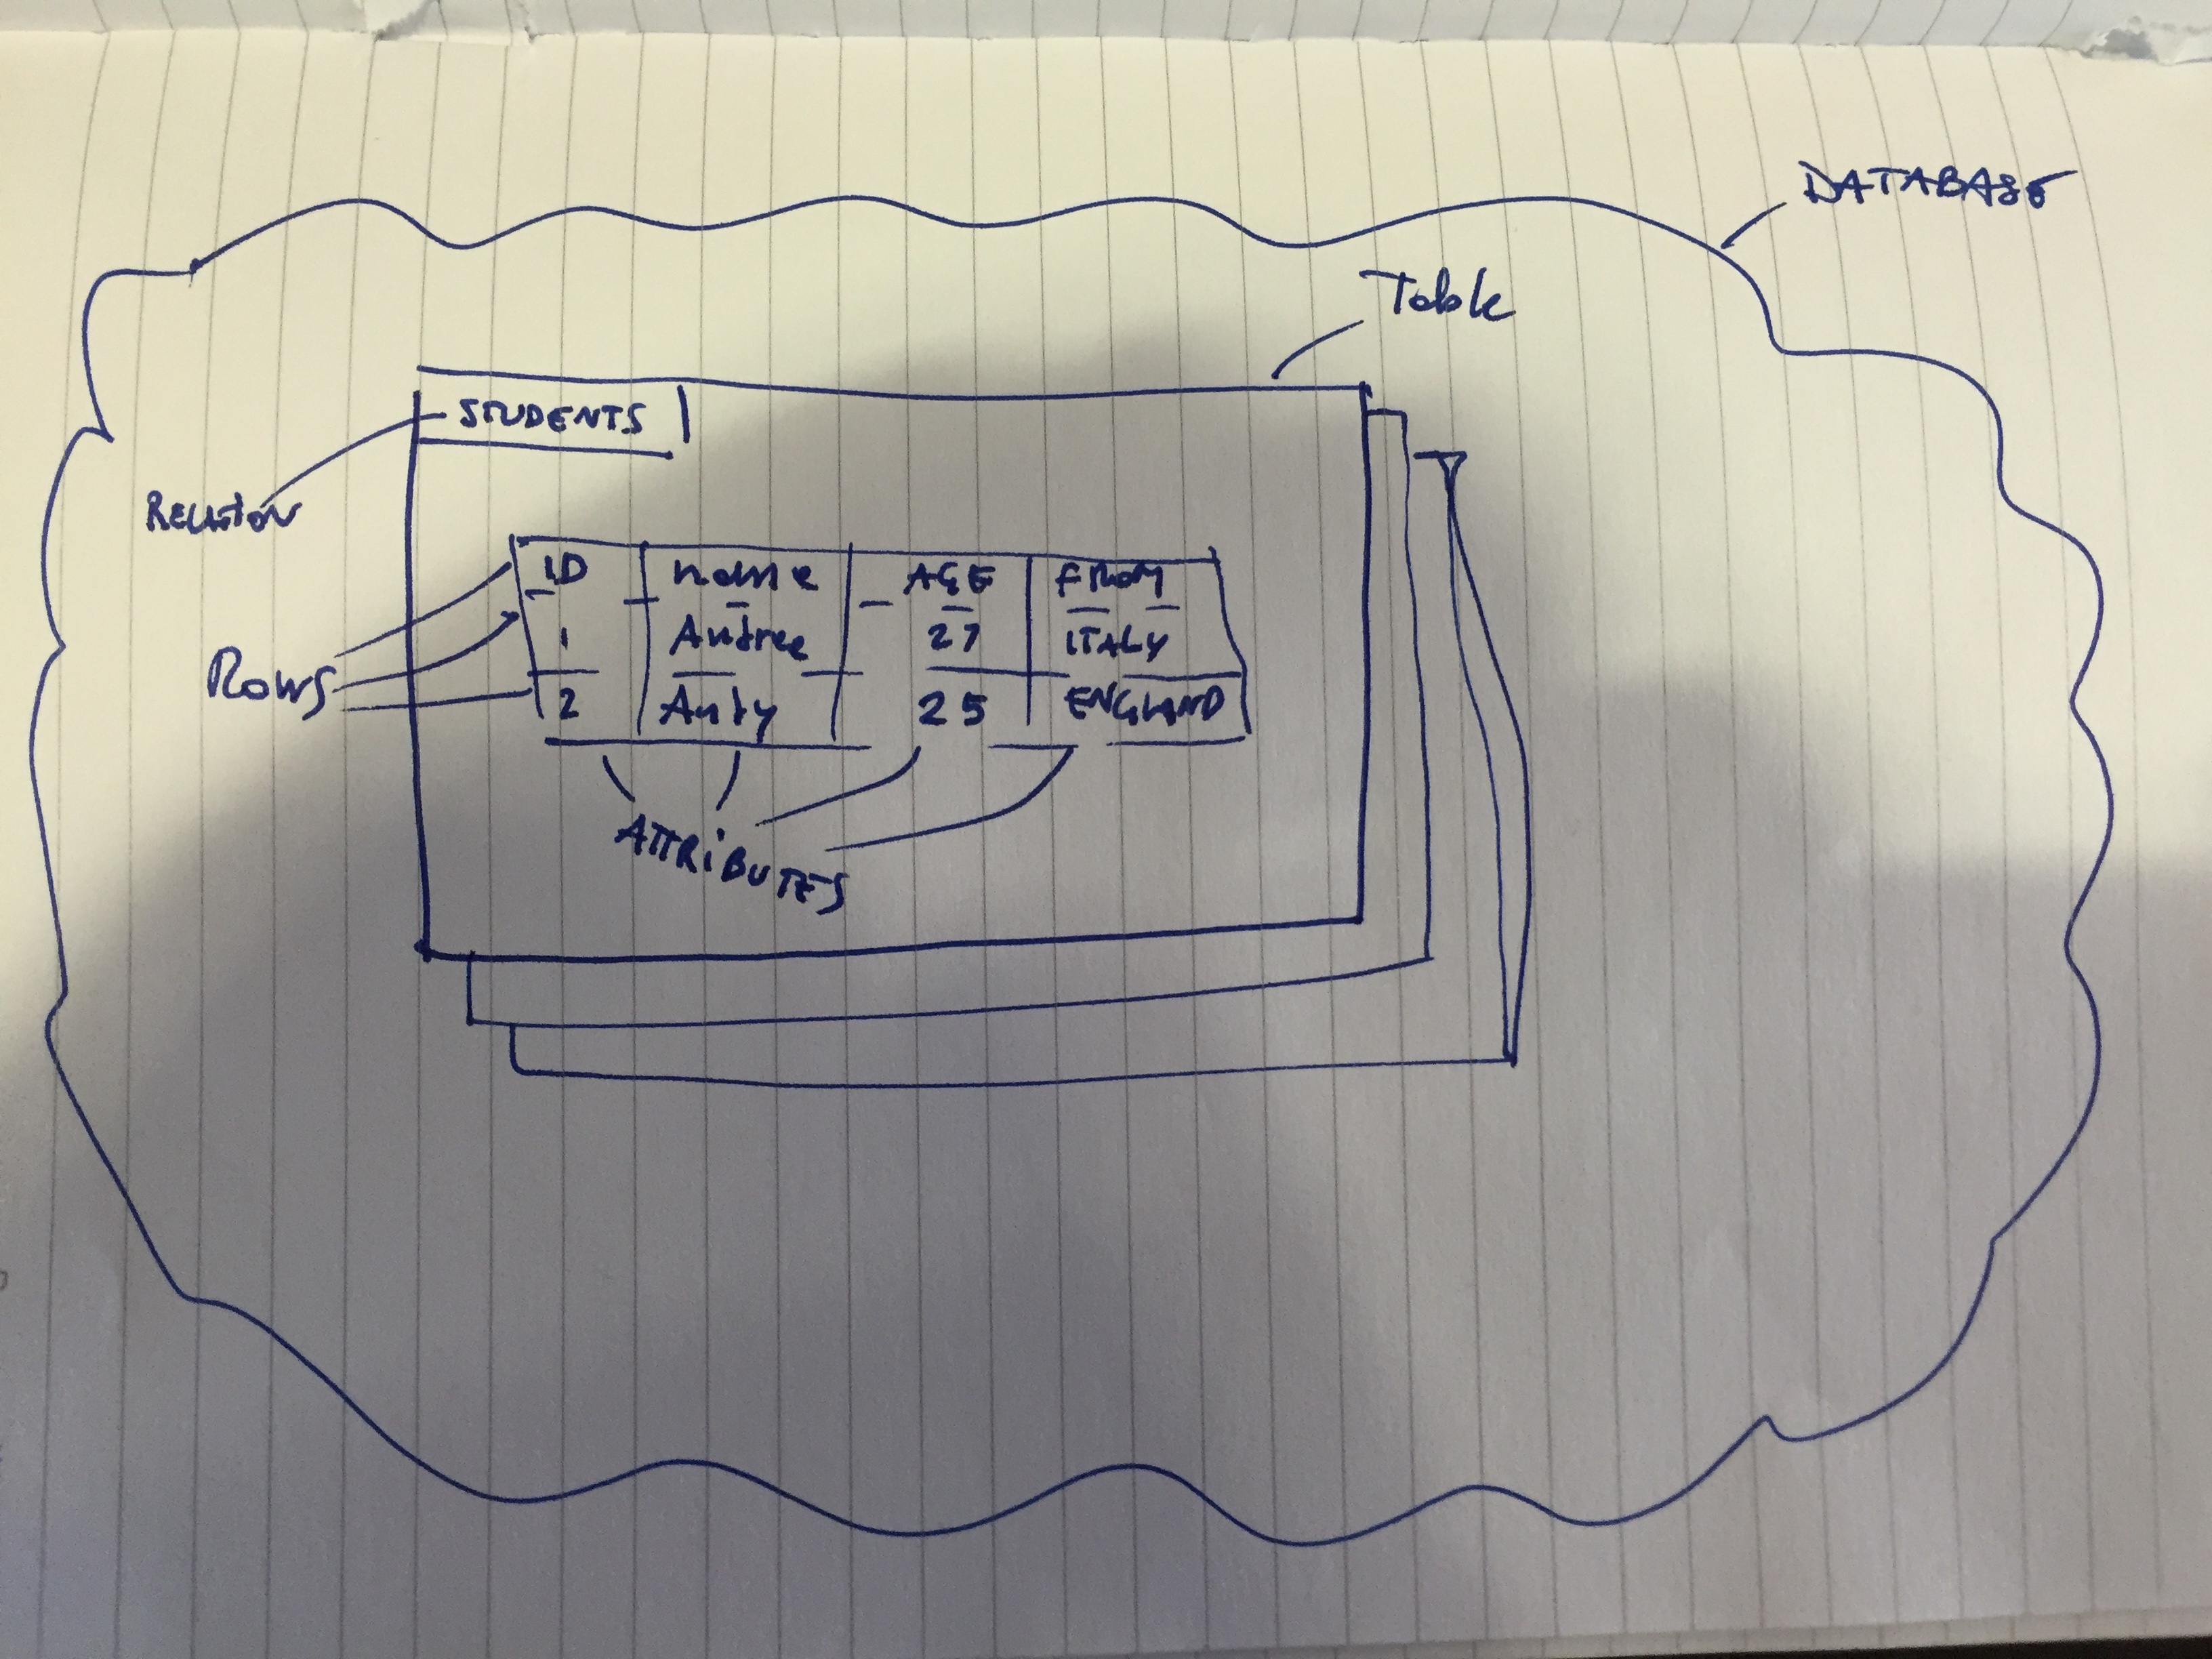 DATABASE
Table
STUDENTS
RELATION
ID name AGE FROM
1 Andrea 27 ITALY
Rows
2 Andy 25 ENGLAND
ATTRIBUTES